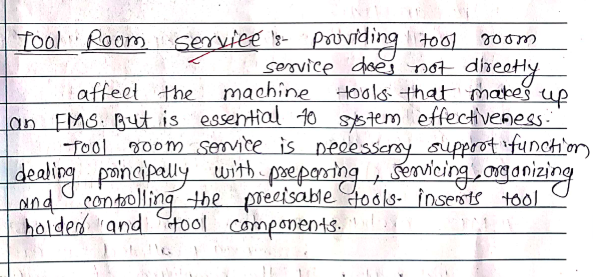 Tool Room Service :- providing tool room
service does not directly
affect the machine tools that makes up
an FMS. But is essential to system effectiveness.
Tool room service is necessary support function
dealing principally with preparing, servicing, organizing
and controlling the precisable tools- inserts tool
holder and tool components.